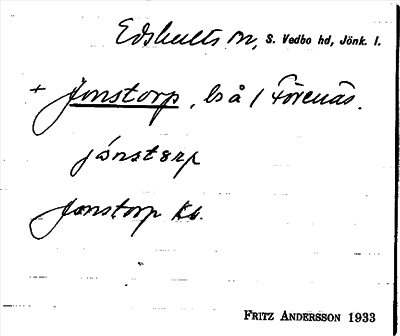 Edshults sn, S. Vedbo hd, Jönk. l.
+ Jonstorp, ls å / Förenäs.
jónstərp
Jonstorp Kb.
FRITZ ANDERSSON 1933